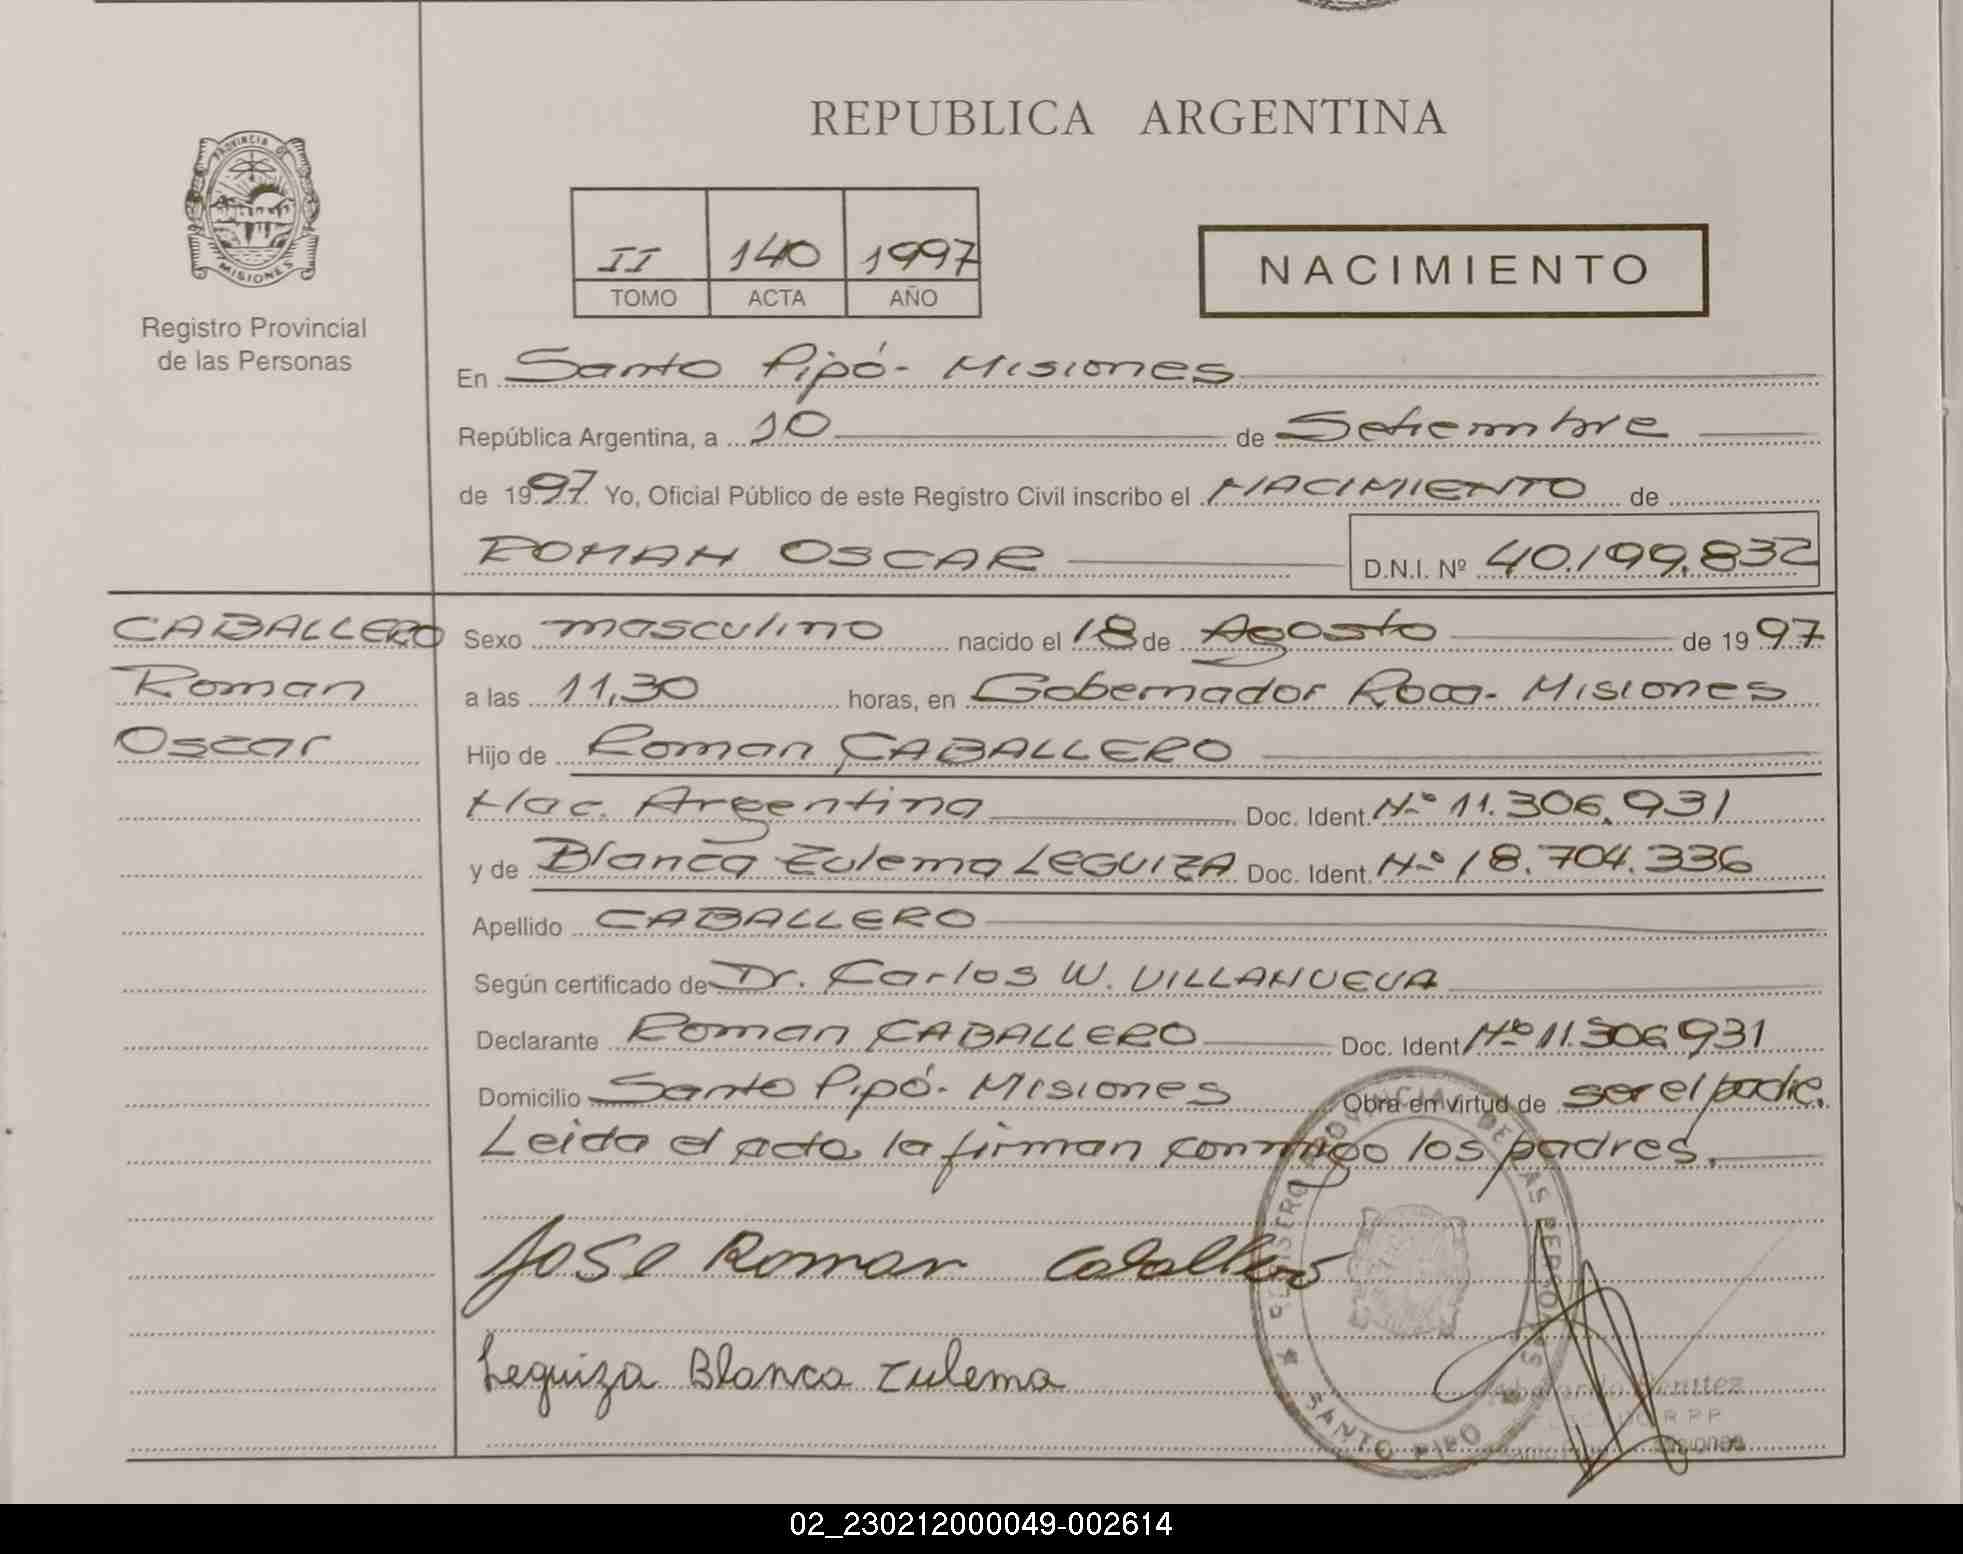 REPUBLICA ARGENTINA
PROVINCIA DE
MISIONES
Registro Provincial
de las Personas
II 140 1997
TOMO ACTA AÑO
NACIMIENTO
En Santo Pipó - Misiones
República Argentina, a 10 de Setiembre
de 1997 Yo, Oficial Público de este Registro Civil inscribo el NACIMIENTO de
ROMAN OSCAR D.N.I. Nº 40.199.832
CABALLERO
Roman
Oscar
Sexo masculino nacido el 18 de Agosto de 1997
a las 11,30 horas, en Gobernador Roca - Misiones
Hijo de Roman CABALLERO
Nac. Argentina Doc. Ident. Nº 11.306.931
y de Blanca Zulema LEGUIZA Doc. Ident. Nº 18.704.336
Apellido CABALLERO
Según certificado de Dr. Carlos W. VILLANUEVA
Declarante Roman CABALLERO Doc. Ident Nº 11.306.931
Domicilio Santo Pipó - Misiones Obra en virtud de ser el padre.
Leida el acta la firman conmigo los padres.
Jose Roman Caballero
Leguiza Blanca Zulema
REGISTRO PROVINCIAL DE LAS PERSONAS
SANTO PIPO
Benitez
R.P.P.
Misiones
02_230212000049-002614